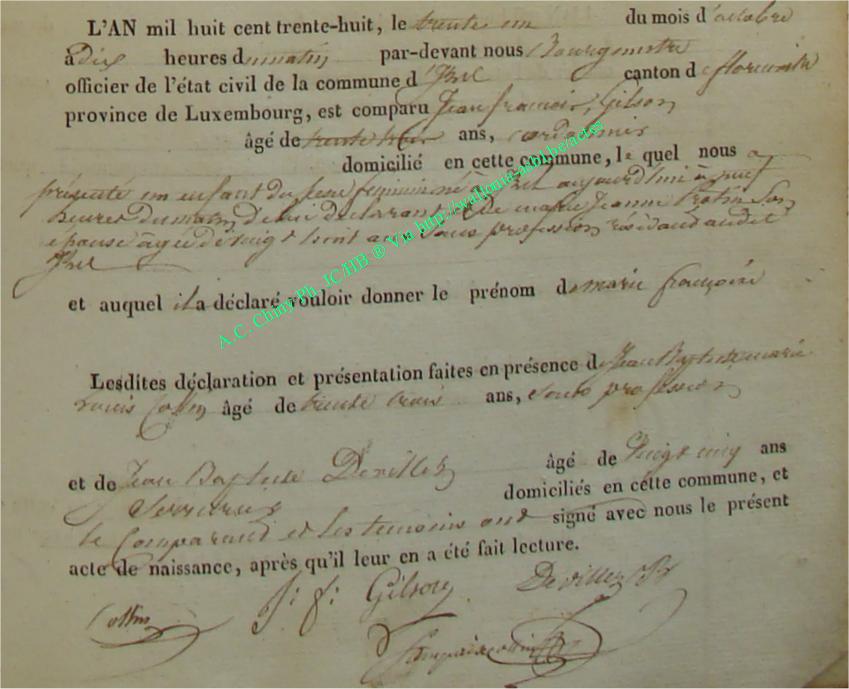 L'AN mil huit cent trente-huit, le trente un du mois d'octobre
à dix heures du matin par-devant nous Bourgmestre
officier de l'état civil de la commune d' canton de florenville
province de Luxembourg, est comparu Jean françois Gilson
âgé de trente ans, cordonnier
domicilié en cette commune, le quel nous a
présenté un enfant du sexe feminin né à aujourd'hui à neuf
heures du matin, de lui déclarant et de marie Jeanne son
epouse âgée de vingt huit ans sans profession résidend audit

et auquel il a déclaré vouloir donner le prénom de marie françoise
Lesdites déclaration et présentation faites en présence de Jean Baptiste marie
Louis Collin âgé de trente trois ans, sans profession
et de Jean Baptiste Devillez âgé de vingt cinq ans
Serrurier domiciliés en cette commune, et
le Comparant et les temoins ont signé avec nous le présent
acte de naissance, après qu'il leur en a été fait lecture.
Collin J: f: Gilson Devillez
A.C. Chiny Ph. JC/HB ® Via http://wallonia-asbl.be/actes